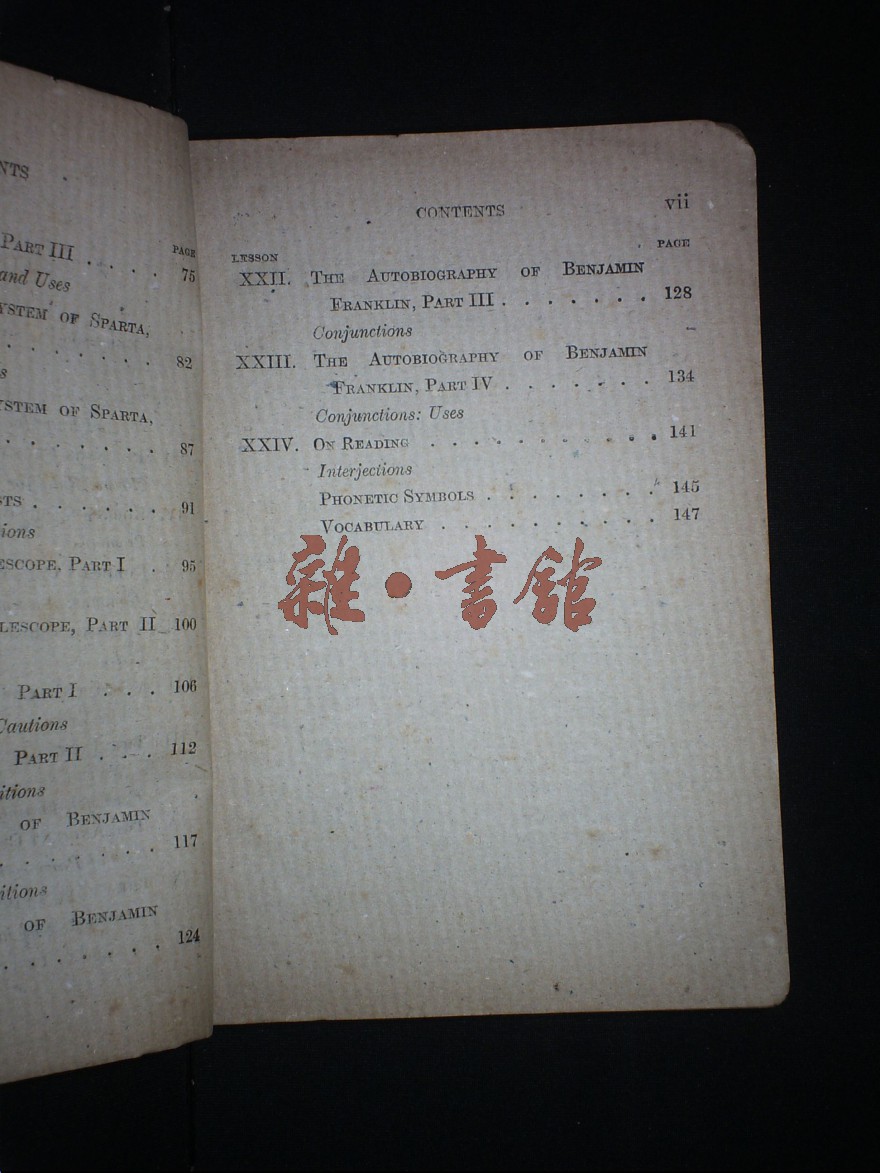 NTS
PART III . . . .
PAGE
75
and Uses
YSTEM OF SPARTA,
. . . . . . . 82
s
YSTEM OF SPARTA,
. . . . . . . 87
STS . . . . . . 91
ions
ESCOPE, PART I . 95
LESCOPE, PART II 100
PART I . . . 106
Cautions
PART II . . . 112
itions
OF BENJAMIN
. . . . . . . 117
itions
OF BENJAMIN
. . . . . . . 124
CONTENTS vii
LESSON PAGE
XXII. THE AUTOBIOGRAPHY OF BENJAMIN
FRANKLIN, PART III . . . . . . . 128
Conjunctions
XXIII. THE AUTOBIOGRAPHY OF BENJAMIN
FRANKLIN, PART IV . . . . . . . 134
Conjunctions: Uses
XXIV. ON READING . . . . . . . . . . 141
Interjections
PHONETIC SYMBOLS . . . . . . . . 145
VOCABULARY . . . . . . . . . . 147
雜·書館